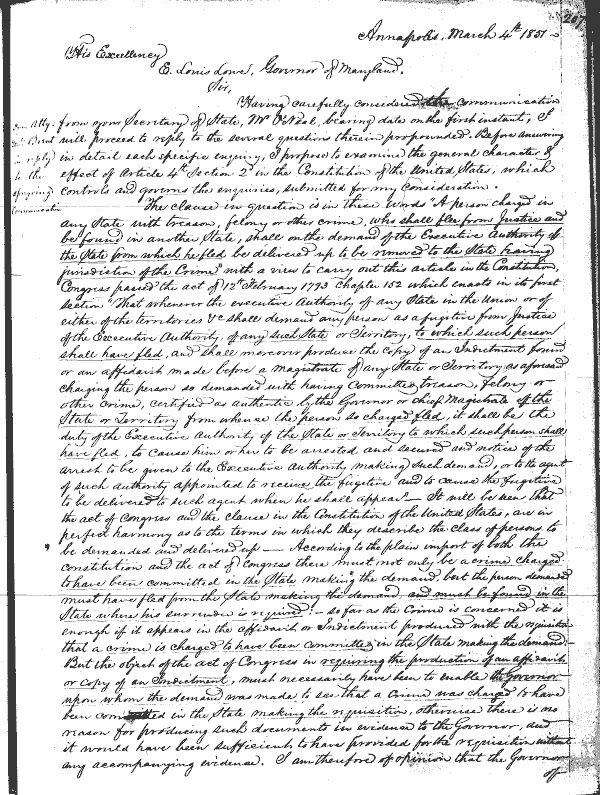 207
Annapolis, March 4th 1851
His Excellency
E. Louis Lowe, Governor of Maryland.
Sir,
Having carefully considered the communication
from your Secretary of State, Mr O'Neal, bearing date on the first instant, I
will proceed to reply to the several questions therein propounded. Before answering
in detail each specific enquiry, I propose to examine the general character &
effect of Article 4th Section 2d in the Constitution of the United States, which
controls and governs the enquiries, submitted for my consideration.
Atty:
in reply
to the
foregoing
Communication
The clause in question is in these words "A person charged in
any State with treason, felony or other crime, who shall flee from Justice and
be found in another State, shall on the demand of the Executive Authority of
the State from which he fled be delivered up to be removed to the State having
jurisdiction of the Crime" with a view to carry out this article in the Constitution,
Congress passed the act of 12th February 1793 Chapter 152 which enacts in its first
section "That whenever the executive Authority of any State in the Union or of
either of the territories &c shall demand any person as a fugitive from Justice
of the Executive Authority of any such State or Territory, to which such person
shall have fled, and shall moreover produce the Copy of an Indictment found
or an affidavit made before a magistrate of any State or Territory as aforesaid
charging the person so demanded with having Committed treason, felony or
other Crime, certified as authentic by the Governor or chief Magistrate of the
State or Territory from whence the person so charged fled, it shall be the
duty of the Executive Authority of the State or Territory to which such person shall
have fled, to cause him or her to be arrested and secured and notice of the
arrest to be given to the Executive Authority making such demand, or to the agent
of such authority appointed to receive the fugitive and to cause the fugitive
to be delivered to such agent when he shall appear" — It will be seen that
the act of Congress and the clause in the Constitution of the United States, are in
perfect harmony as to the terms in which they describe the class of persons to
be demanded and delivered up — According to the plain import of both the
Constitution and the act of Congress there must not only be a crime charged
to have been committed in the State making the demand but the person demanded
must have fled from the State making the demand, and must be found in the
State where his surrender is required: — so far as the Crime is concerned it is
enough if it appears in the affidavit or Indictment produced with the requisition
that a crime is charged to have been committed in the State making the demand.
But the object of the act of Congress in requiring the production of an affidavit
or copy of an Indictment, must necessarily have been to enable the Governor
upon whom the demand was made to see that a Crime was charged to have
been committed in the State making the requisition, otherwise there is no
reason for producing such documents in evidence to the Governor, and
it would have been sufficient to have provided for the requisition without
any accompanying evidence. I am therefore of opinion that the Governor
of